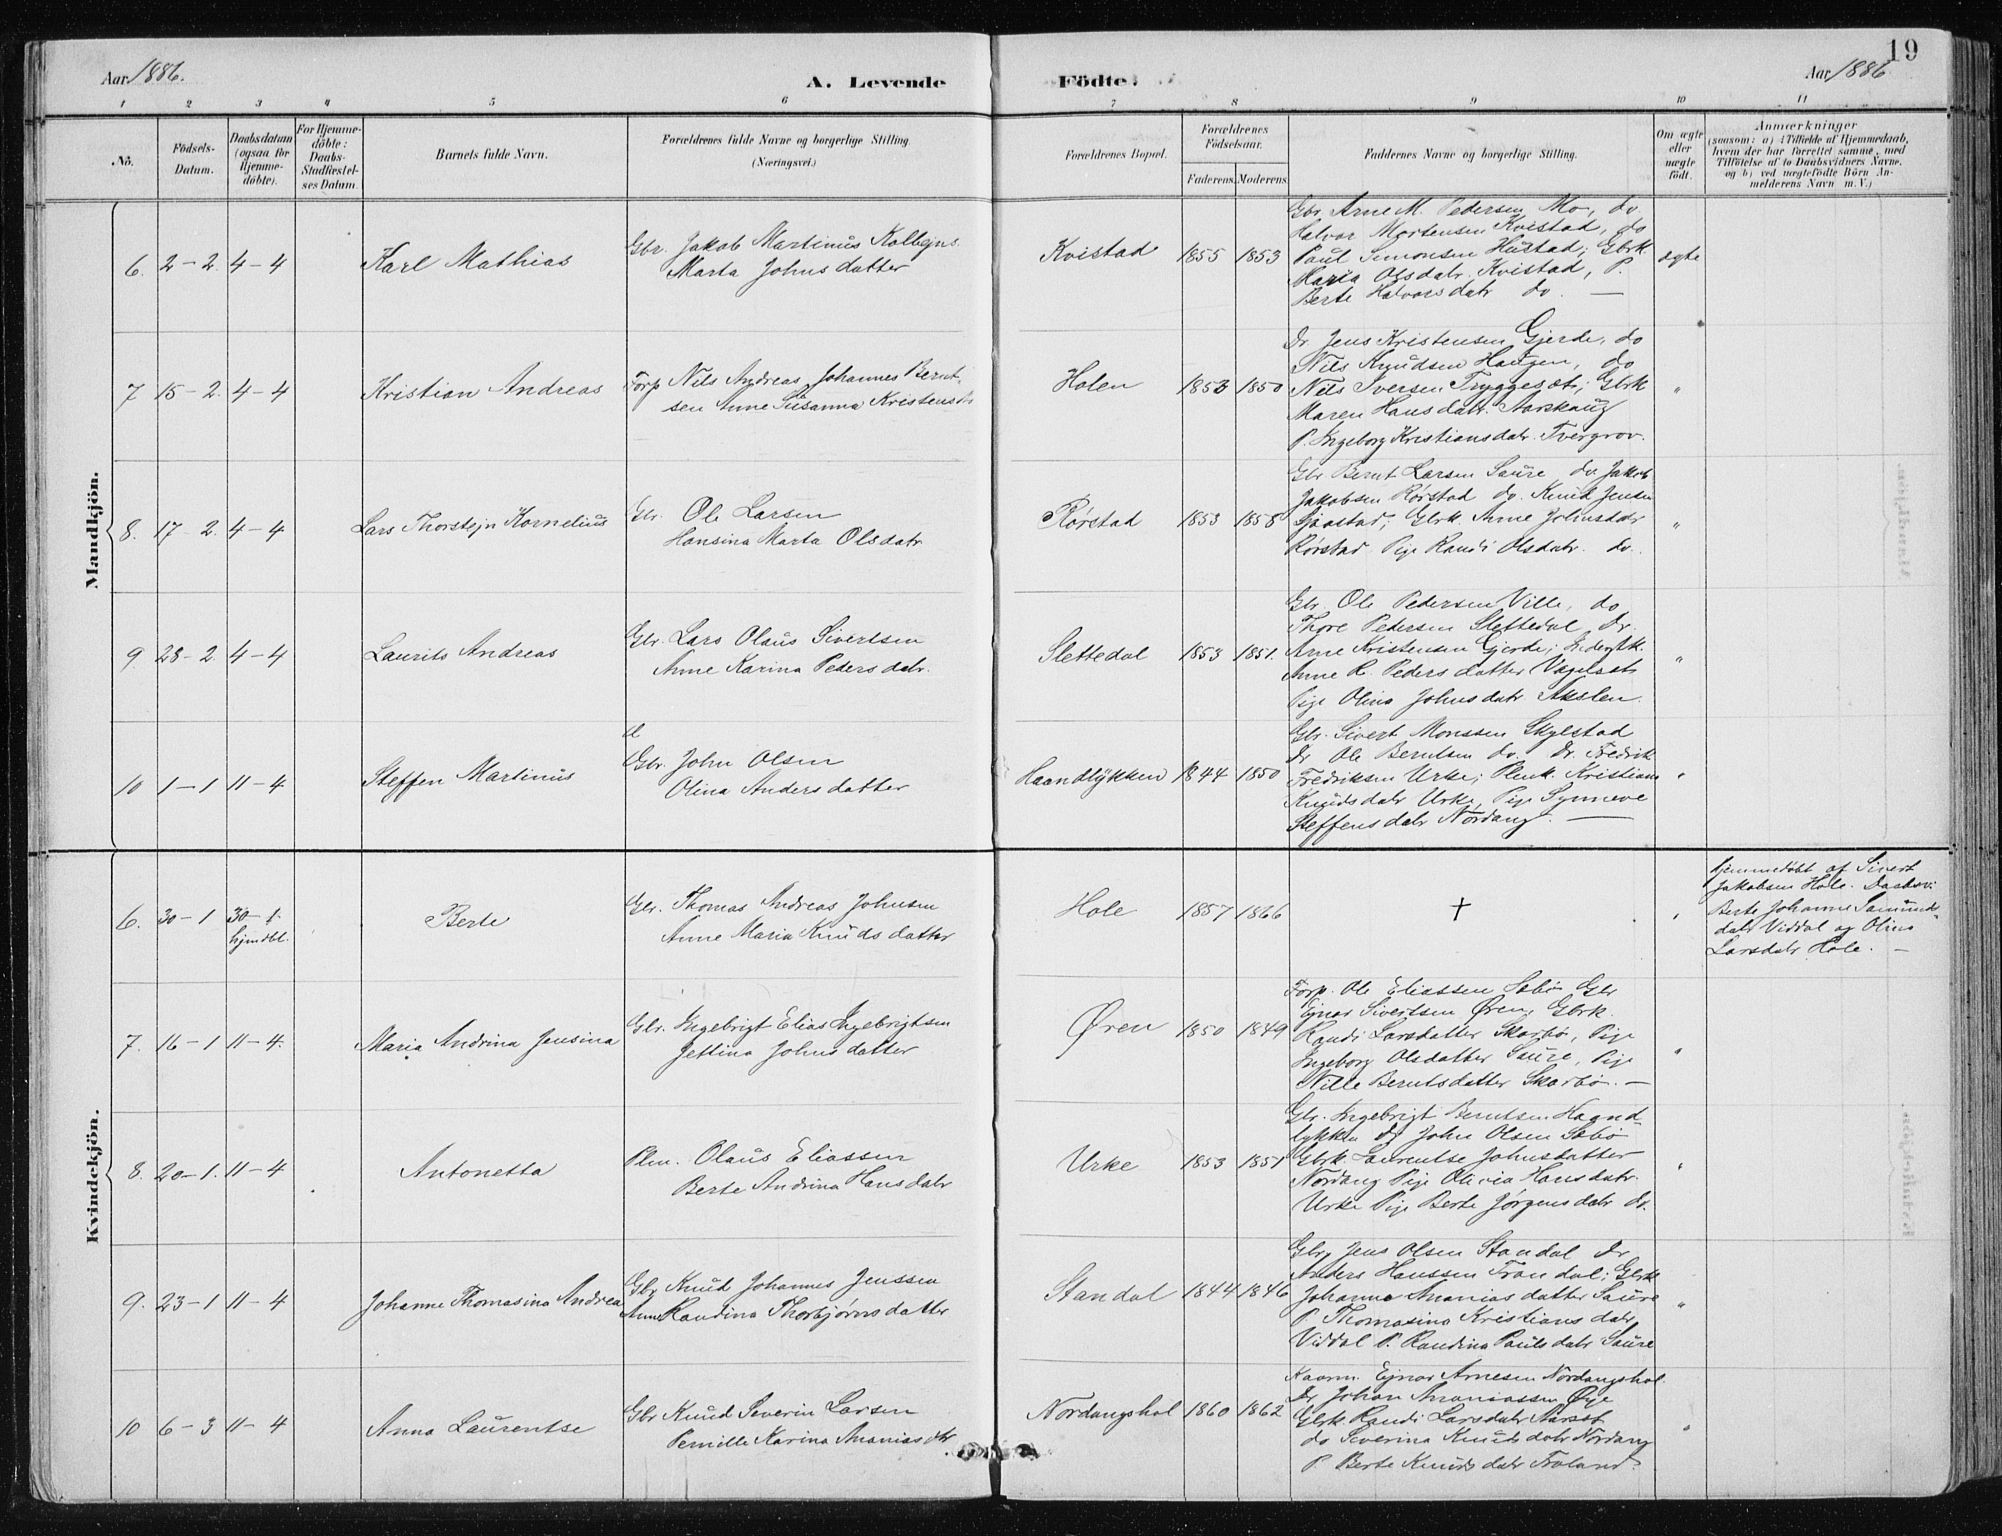 19
Aar 1886.
A. Levende Födte.
Aar 1886
1 2 3 4 5 6 7 8 9 10 11
No.
Födsels-Datum.
Daabsdatum (ogsaa for Hjemme-döbte).
For Hjemme-döbte: Daabs-Stadfæstel-ses Datum.
Barnets fulde Navn.
Forældrenes fulde Navne og borgerlige Stilling. (Næringsvei.)
Forældrenes Bopæl.
Forældrenes Födselsaar.
Faderens. Moderens.
Faddernes Navne og borgerlige Stilling.
Om ægte eller uægte födt.
Anmærkninger
(saasom: a) i Tilfælde af Hjemmedaab,
hvem der har forrettet samme, med
Tilföielse af to Daabsvidners Navne.
og b) ved uægtefödte Börn An-
melderens Navn m. V.)
Mandkjön.
6. 2-2. 4-4
Karl Mathias
Gbr. Jakob Martinus Kolbejns.
Marta Johnsdatter
Kvistad 1855 1853
Gbr. Arne M. Pedersen Mo, do
Halvor Mortensen Kvistad, do
Paul Simonsen Hustad; Gbrk
Maria Olsdatr. Kvistad, P.
Berte Halvorsdatr do. —
ægte
7 15-2. 4-4
Kristian Andreas
Forp Nils Andreas Johannes Bernt-
sen Anne Susanna Kristensdtr
Holen 1853 1850
Dr. Jens Kristensen Gjerde, do
Nils Knudsen Haugen, do
Nils Iversen Tryggesæt; Gbrk
Maren Hansdatr. Aarskaug
P. Ingeborg Kristiansdatr. Tvergrov.
"
8. 17-2. 4-4
Lars Thorstejn Kornelius
Gbr. Ole Larsen
Hansina Marta Olsdatr
Rørstad 1853 1858
Gbr Bernt Larsen Saure do. Jakob
Jakobsen Rørstad do. Knud Jensen
Sjaastad; Gbrk. Anne Johnsdatr
Rørstad Pige Randi Olsdatr. do.
"
9 28-2. 4-4
Laurits Andreas
Gbr. Lars Olaus Sivertsen
Anne Karina Pedersdatr.
Slettedal 1853 1851.
Gbr Ole Pedersen Ville, do
Thore Pedersen Slettedal, Dr.
Arne Kristensen Gjerde;
Anne R. Pedersdatter
Pige Olina Johnsdatr Akslen.
"
10 1-1 11-4
Steffen Martinus
Gbr. John Olsen
Olina Andersdatter
Haandlykken 1844 1850
Gbr. Sivert Monssen Skylstad
Dr Ole Berntsen do. Dr. Fredrik
Fredriksen Urke; Plmk. Kristiane
Knudsdatr Urke, Pige Synneve
Steffensdatr Nordang. —
"
Kvindekjön.
6. 30-1 30-1. hjmdbt.
Berte
Gbr. Thomas Andreas Johnsen
Anne Maria Knudsdatter
Hole 1857 1866
†
"
hjemmedøbt af Sivert
Jakobsen Hole. Daabsvi:
Berte Johanne Samunds-
datr Viddal og Olina
Larsdatr Hole. —
7. 16-1 11-4.
Maria Andrina Jensina
Gbr. Ingebrigt Elias Ingebrigtsen
Jettina Johnsdatter
Øren 1850 1849
Forp. Ole Eliassen Sæbø Gbr
Ejnar Sivertsen Øren; Gbrk.
Randi Larsdatter Skarbø, Pige
Ingeborg Olsdatter Saure, Pige
Nille Berntsdatter Skarbø. —
"
8. 20-1. 11-4
Antonetta
Plm. Olaus Eliassen
Berte Andrina Hansdatr
Urke 1853 1851
Gbr. Ingebrigt Berntsen Haand-
lykken Dr John Olsen Sæbø
Gbrk Laurentse Johnsdatter
Nordang Pige Olivia Hansdatr.
Urke Pige Berte Jørgensdatr do.
"
9. 23-1 11-4
Johanne Thomasina Andrea
Gbr Knud Johannes Jenssen
Anne Randina Thorbjørnsdatter
Standal 1844 1846
Gbr Jens Olsen Standal Dr
Anders Hanssen Trandal; Gbrk
Johanne Ananiasdatter Saure
P. Thomasina Kristiansdatr
Viddal P. Randina Paulsdatr Saure
"
10 6-3 11-4
Anna Laurentse
Gbr Knud Severin Larsen
Pernille Karina Ananiasdtr
Nordangshol 1860 1862
Kaarm. Ejnar Arnesen Nordangshol
Dr Johan Ananiassen Øye
Gbrk. Randi Larsdatr Aarset
do Severina Knudsdatr Nordang
P Berte Knudsdatr
"